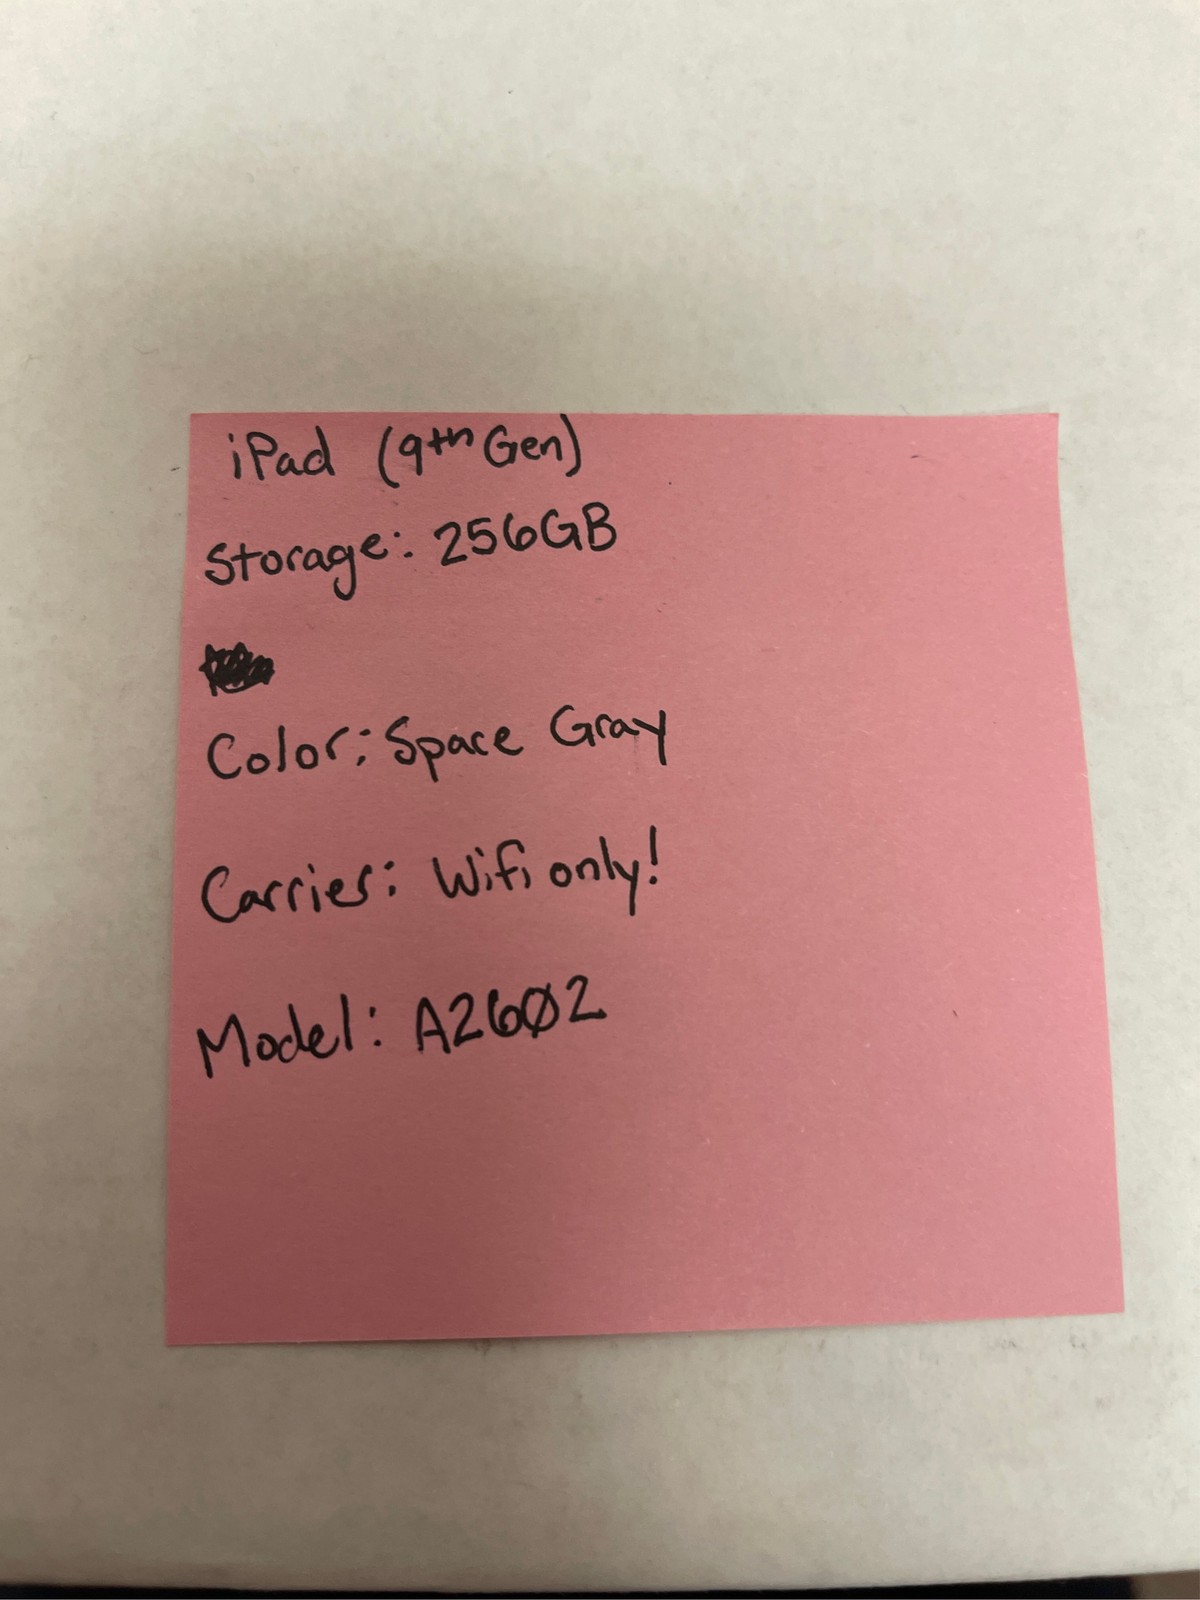 iPad (9th Gen)
Storage: 256GB
Color: Space Gray
Carrier: Wifi only!
Model: A26Ø2